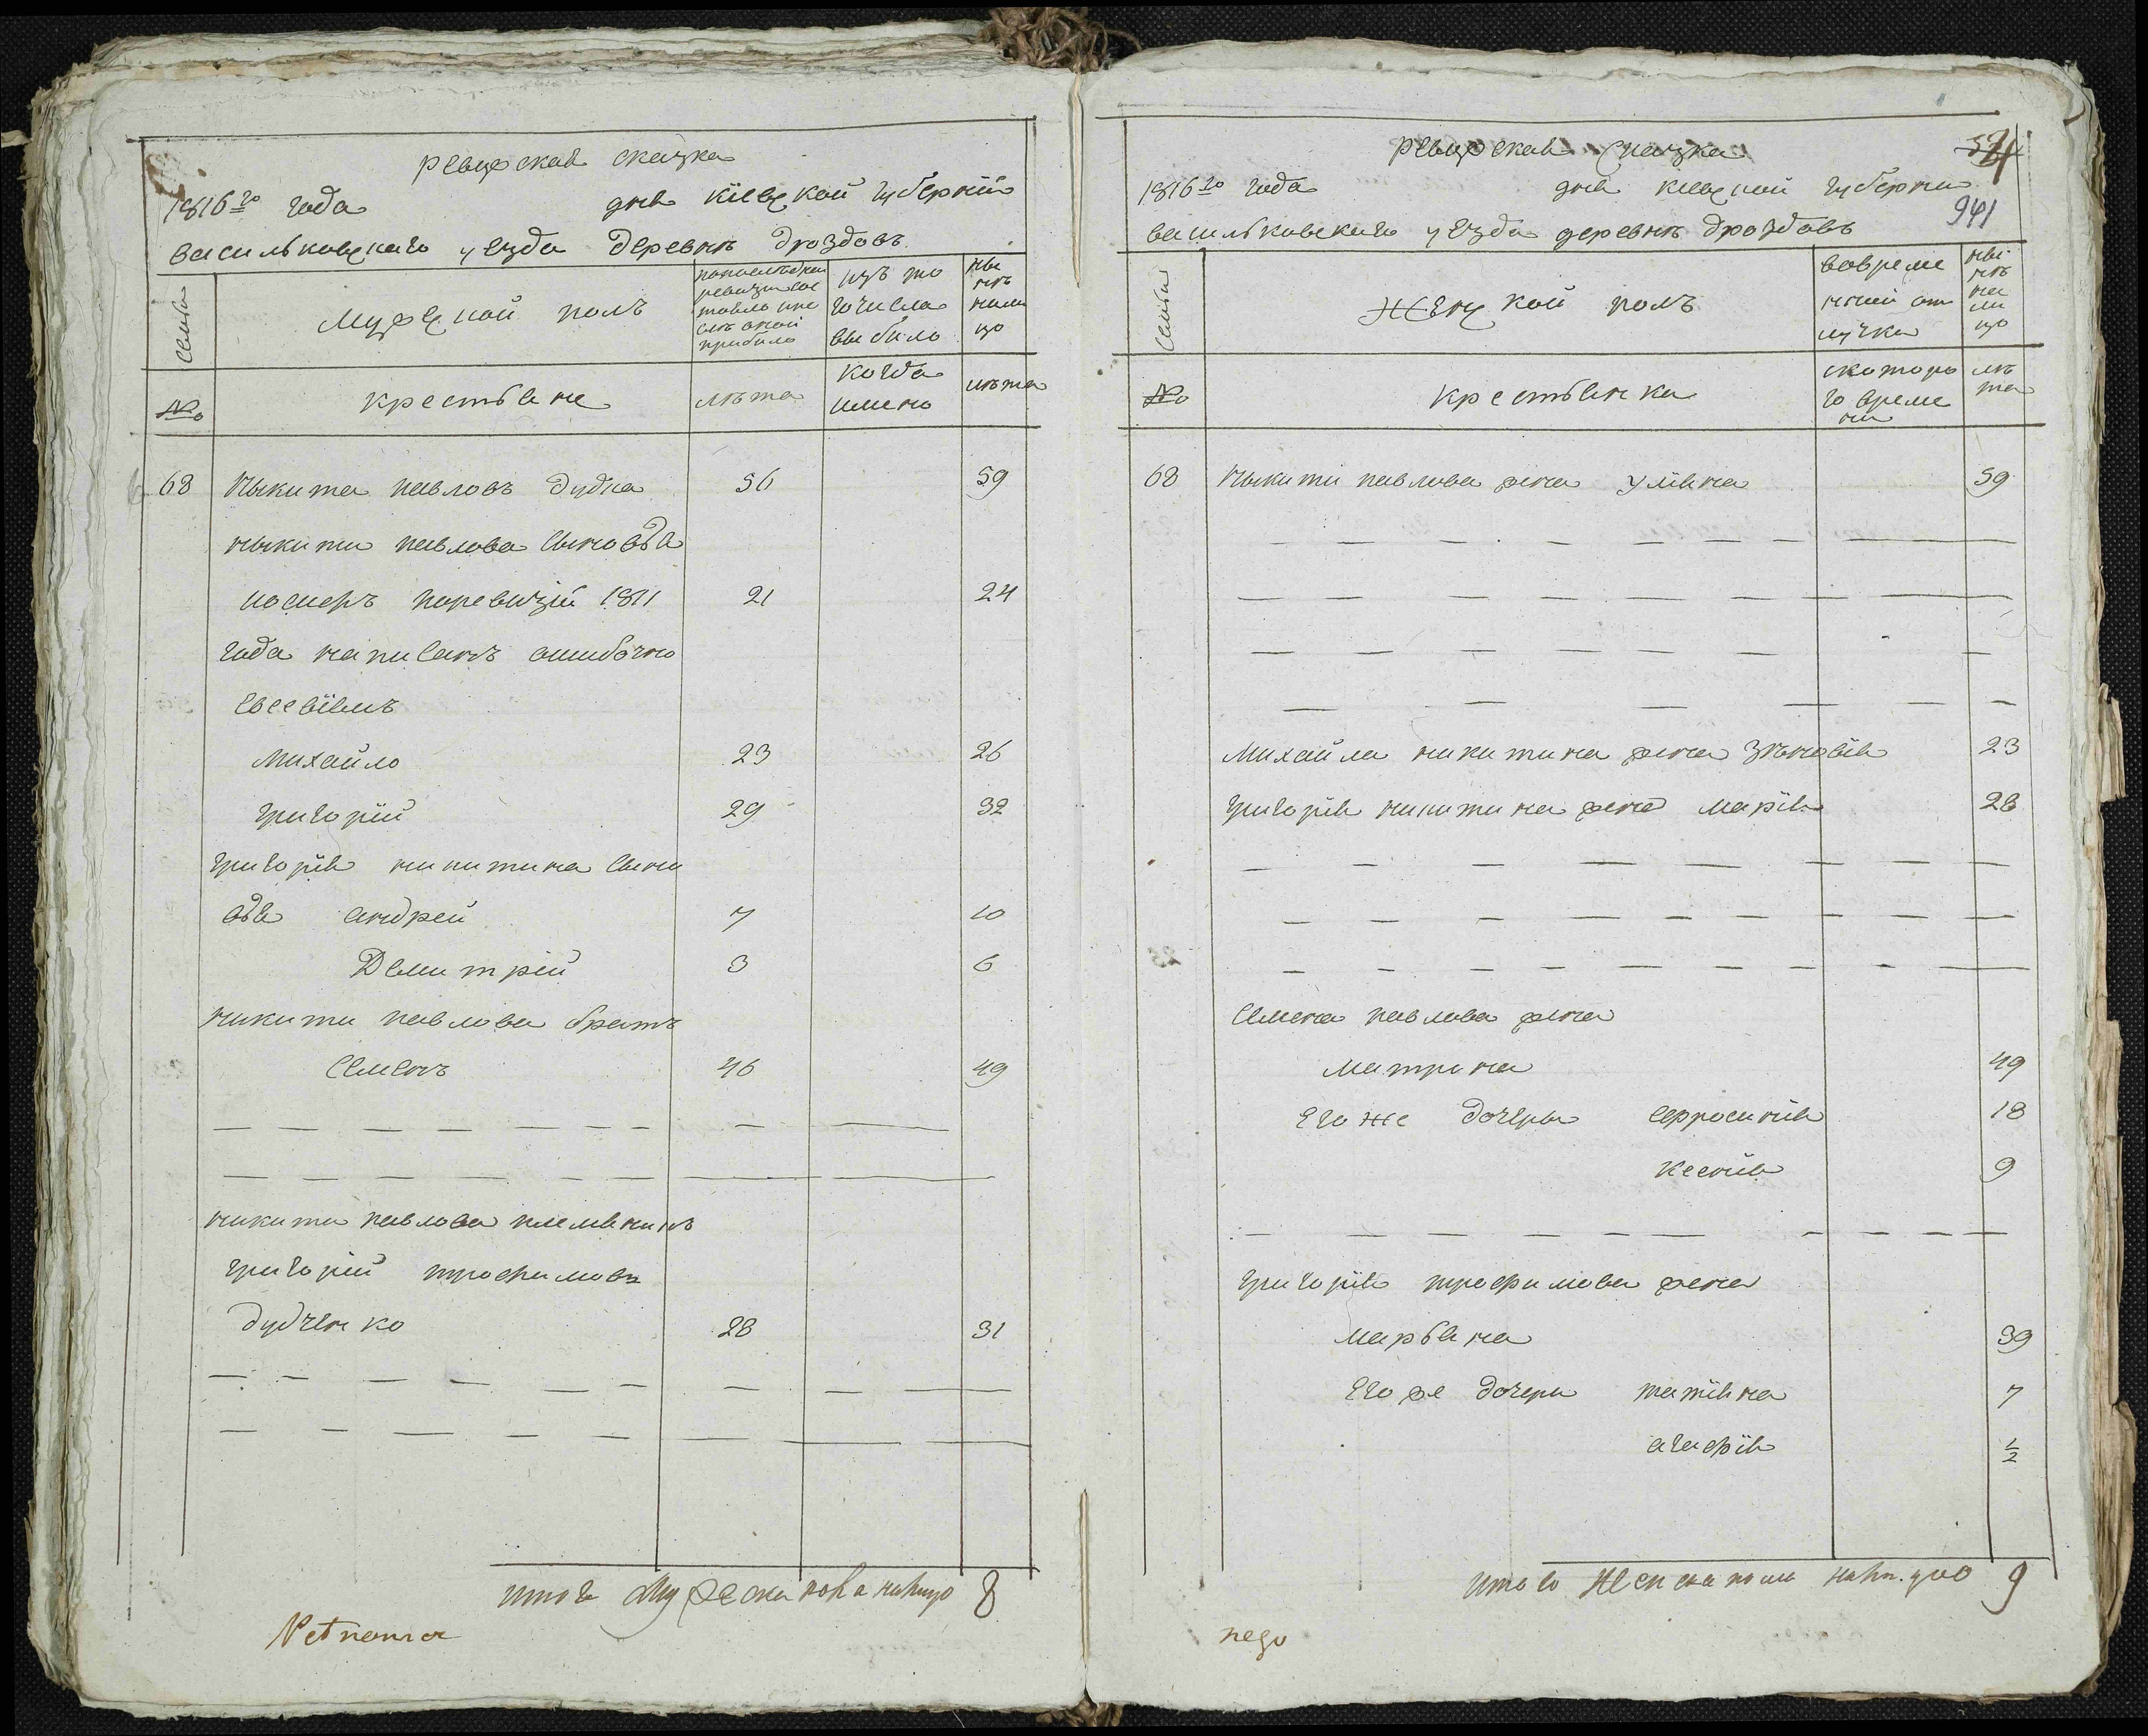 Ревизская сказка
1816го года дня Кіевской губерніи
Васильковскаго уезда деревнѣ Дроздовъ
Семьи
Мужеской полъ
по последней ревизіи состояло и после оной прибыло
изъ того числа выбыло
ныне налицо
№
Крестьяне
лѣта
когда имено
лѣта
68 Никита Павловъ Дудка 56 59
Никити Павлова синовья
Иосифъ по ревизіи 1811 21 24
года написанъ ошибочно
Евсевіемъ
Михайло 23 26
Григорій 29 32
Григорія Никитина сыно
вья Андрей 7 10
Демитрій 3 6
Никити Павлова братъ
Семенъ 46 49
Никити Павлова племяникъ
Григорій Трофимовъ
Дудченко 28 31
итого мужеска пола налицо 8
Ревизская сказка
54
1816го года дня Кіевской губерни
941
Васильковскаго уезда деревнѣ Дроздовъ
Семьи
Женской полъ
во временной отлучки
ныне налицо
№
Крестьянка
с котораго времени
лѣта
68 Никити Павлова жена Уліяна 59
Михайла Никитина жена Зѣновія 23
Григорія Никитина жена Марія 28
Семена Павлова жена
Матрона 49
Его же дочери Ефросинія 18
Ксенія 9
Григорія Трофимова жена
Марьяна 39
Его же дочери Татіяна 7
Агафія 1/2
итого женска пола налицо 9